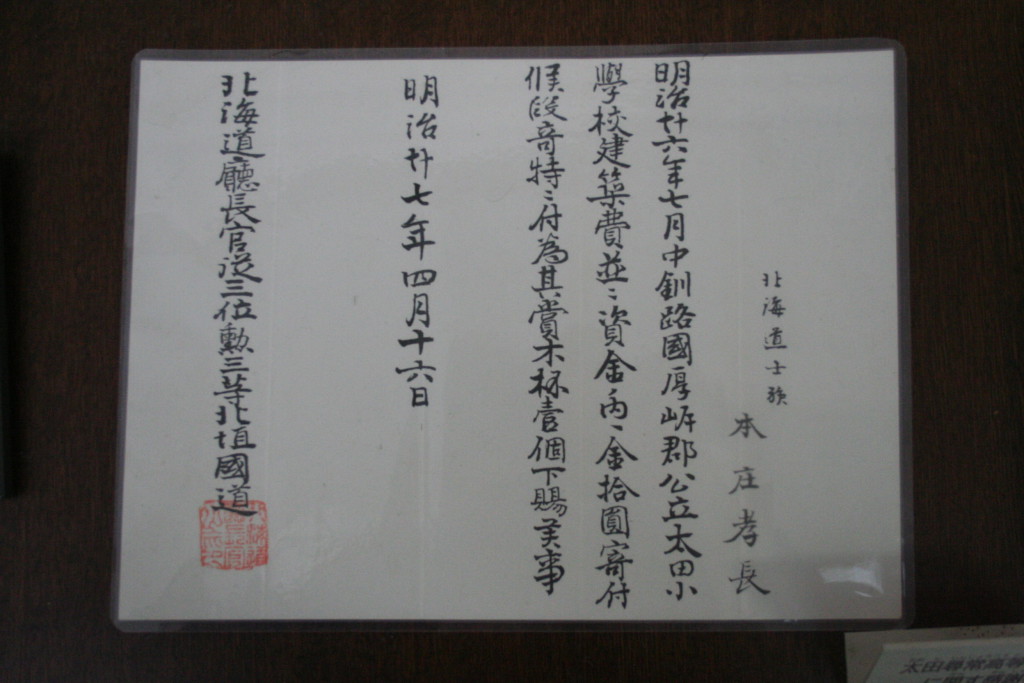 北海道士族
本庄孝長
明治廿六年七月中釧路國厚岸郡公立太田小
學校建築費並ニ資金ノ内ヘ金拾圓寄付
候段奇特ニ付為其賞木杯壹個下賜候事
明治廿七年四月十六日
北海道廳長官従三位勲三等北垣國道
太田尋常高等